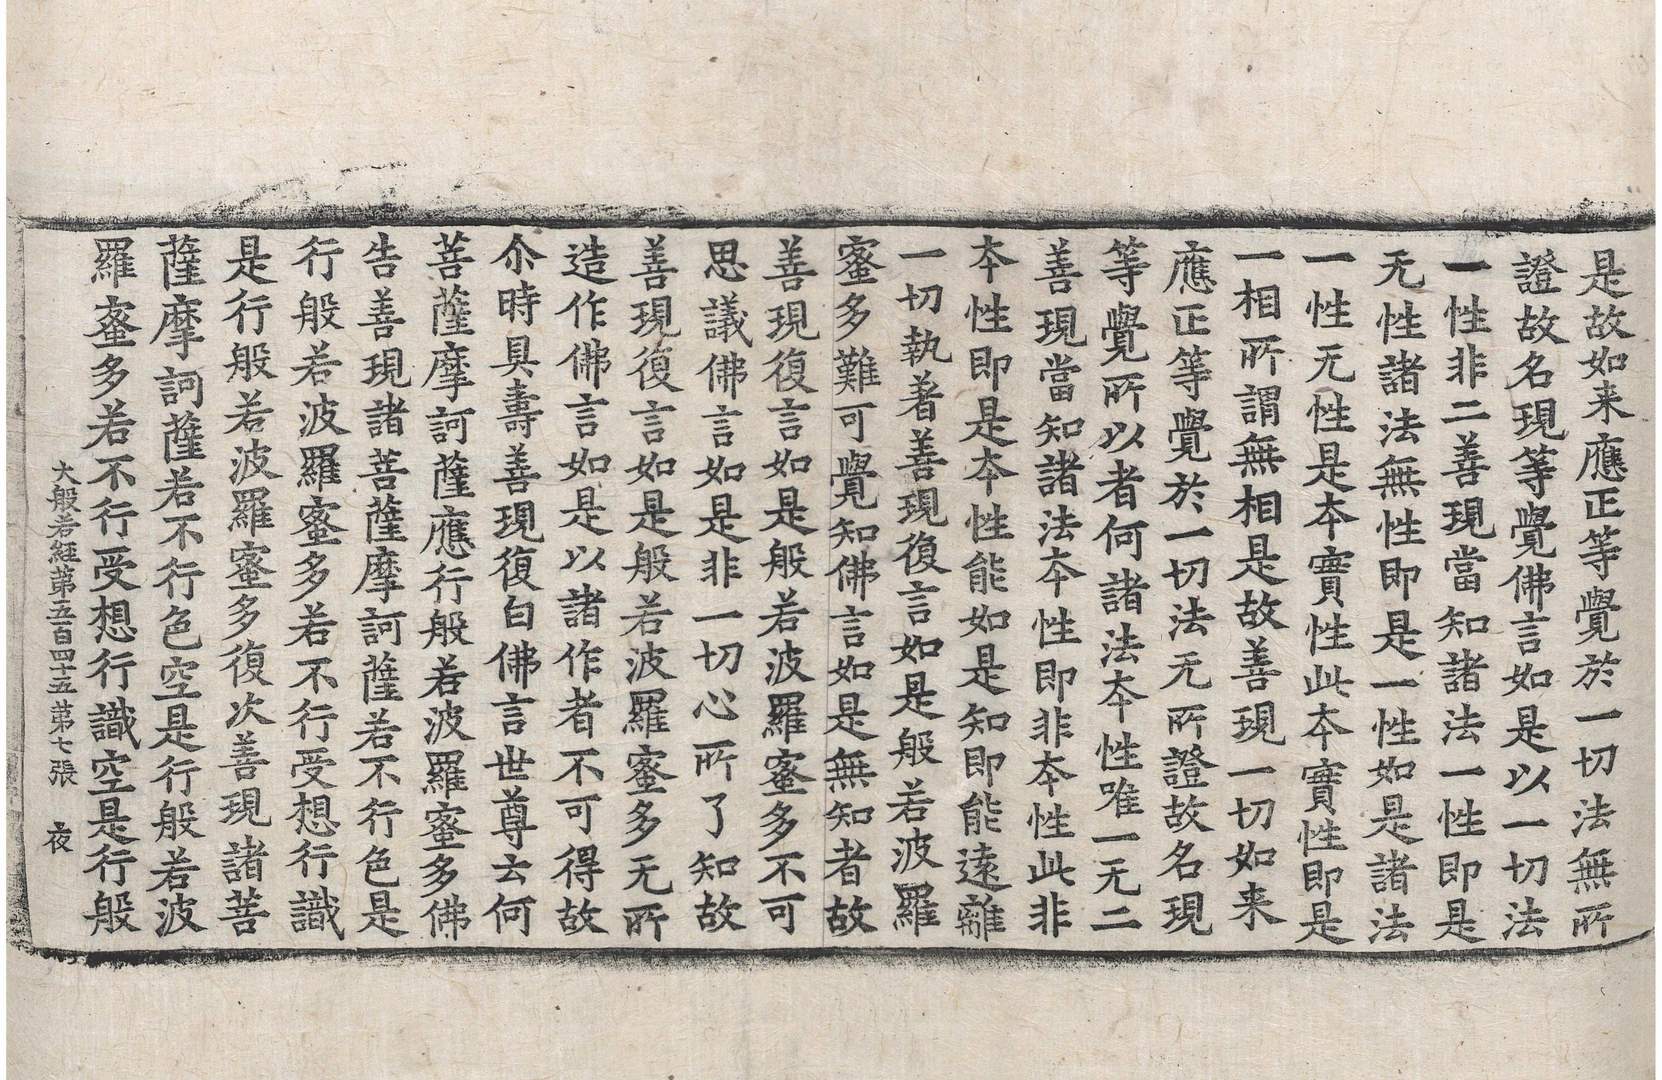 是故如来應正等覺於一切法無所
證故名現等覺佛言如是以一切法
一性非二善現當知諸法一性即是
无性諸法無性即是一性如是諸法
一性无性是本實性此本實性即是
一相所謂無相是故善現一切如来
應正等覺於一切法无所證故名現
等覺所以者何諸法本性唯一无二
善現當知諸法本性即非本性此非
本性即是本性能如是知即能遠離
一切執著善現復言如是般若波羅
蜜多難可覺知佛言如是無知者故
善現復言如是般若波羅蜜多不可
思議佛言如是非一切心所了知故
善現復言如是般若波羅蜜多无所
造作佛言如是以諸作者不可得故
尒時具壽善現復白佛言世尊云何
菩薩摩訶薩應行般若波羅蜜多佛
告善現諸菩薩摩訶薩若不行色是
行般若波羅蜜多若不行受想行識
是行般若波羅蜜多復次善現諸菩
薩摩訶薩若不行色空是行般若波
羅蜜多若不行受想行識空是行般
大般若經第五百四十五 第七張 夜